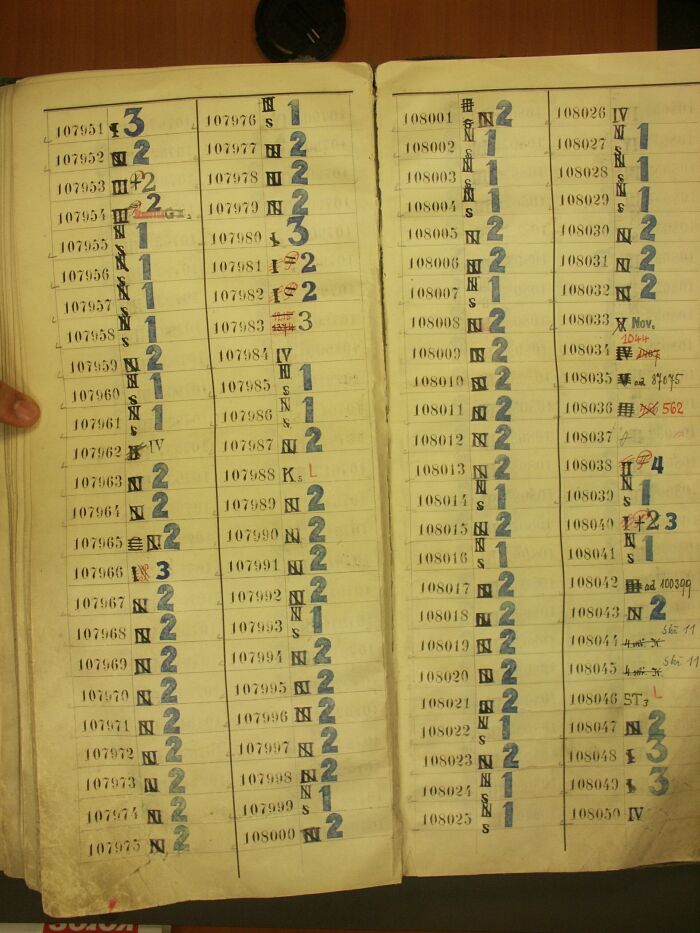 107951 3
107952 N 2
107953 III +2
107954 III 2
107955 N s 1
107956 N s 1
107957 N s 1
107958 N s 1
107959 N 2
107960 N s 1
107961 N s 1
107962 IV
107963 N 2
107964 N 2
107965 N 2
107966 I 3
107967 N 2
107968 N 2
107969 N 2
107970 N 2
107971 N 2
107972 N 2
107973 N 2
107974 N 2
107975 N 2
107976 N s 1
107977 N 2
107978 N 2
107979 N 2
107980 I 3
107981 I 2
107982 I 2
107983 3
107984 IV
107985 N s 1
107986 N s 1
107987 N 2
107988 K s L
107989 N 2
107990 N 2
107991 N 2
107992 N 2
107993 N s 1
107994 N 2
107995 N 2
107996 N 2
107997 N 2
107998 N 2
107999 N s 1
108000 N 2
108001 N 2
108002 N s 1
108003 N s 1
108004 N s 1
108005 N 2
108006 N 2
108007 N s 1
108008 N 2
108009 N 2
108010 N 2
108011 N 2
108012 N 2
108013 N 2
108014 N s 1
108015 N 2
108016 N s 1
108017 N 2
108018 N 2
108019 N 2
108020 N 2
108021 N 2
108022 N s 1
108023 N 2
108024 N s 1
108025 N s 1
108026 IV
108027 N s 1
108028 N s 1
108029 N s 1
108030 N 2
108031 N 2
108032 N 2
108033 V Nov.
108034 IV 1044
108035 V ad 87075
108036 III 562
108037
108038 II 4
108039 N s 1
108040 I +2 3
108041 N s 1
108042 III ad 100399
108043 N 2
108044 Skř 11
108045 Skř 11
108046 ST3 L
108047 N 2
108048 I 3
108049 I 3
108050 IV